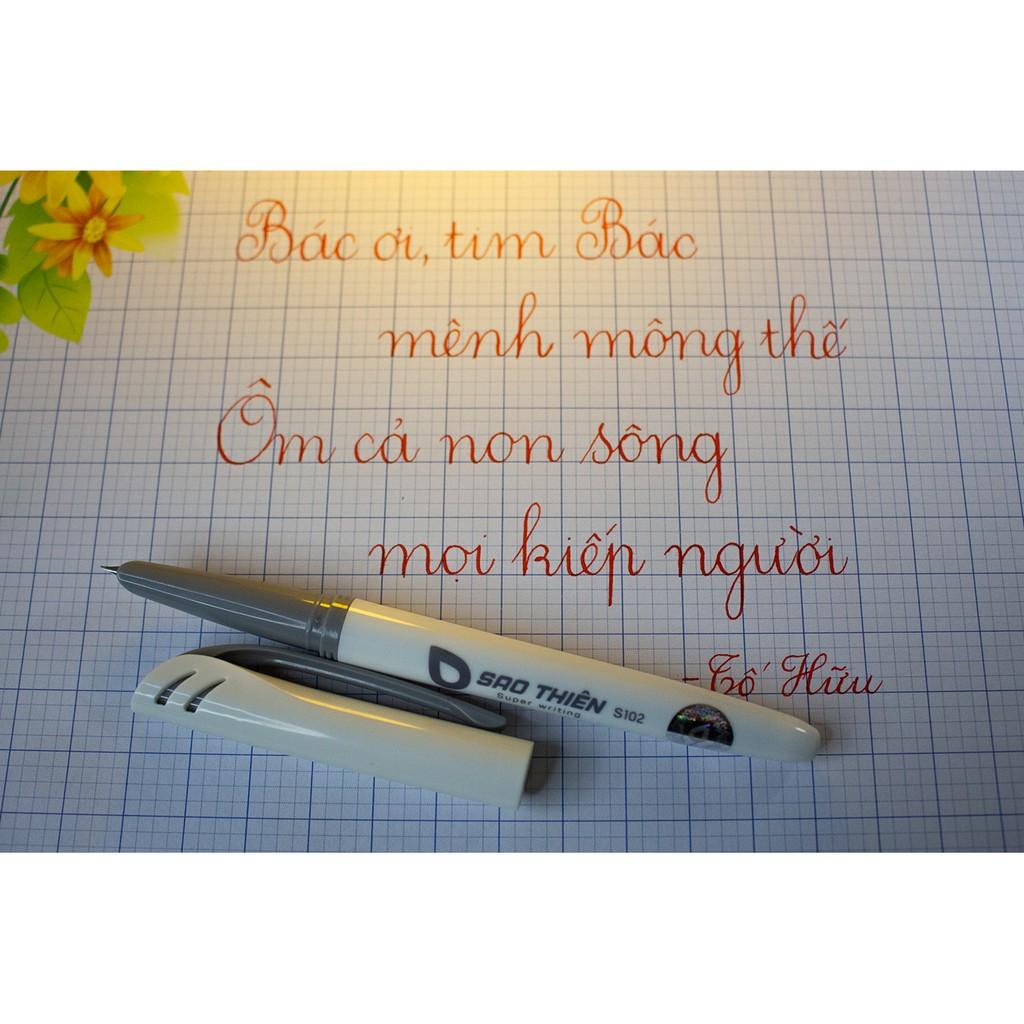 Bác ơi, tim Bác
mênh mông thế
Ôm cả non sông
mọi kiếp người
-Tố Hữu
SAO THIÊN S102
Super writing